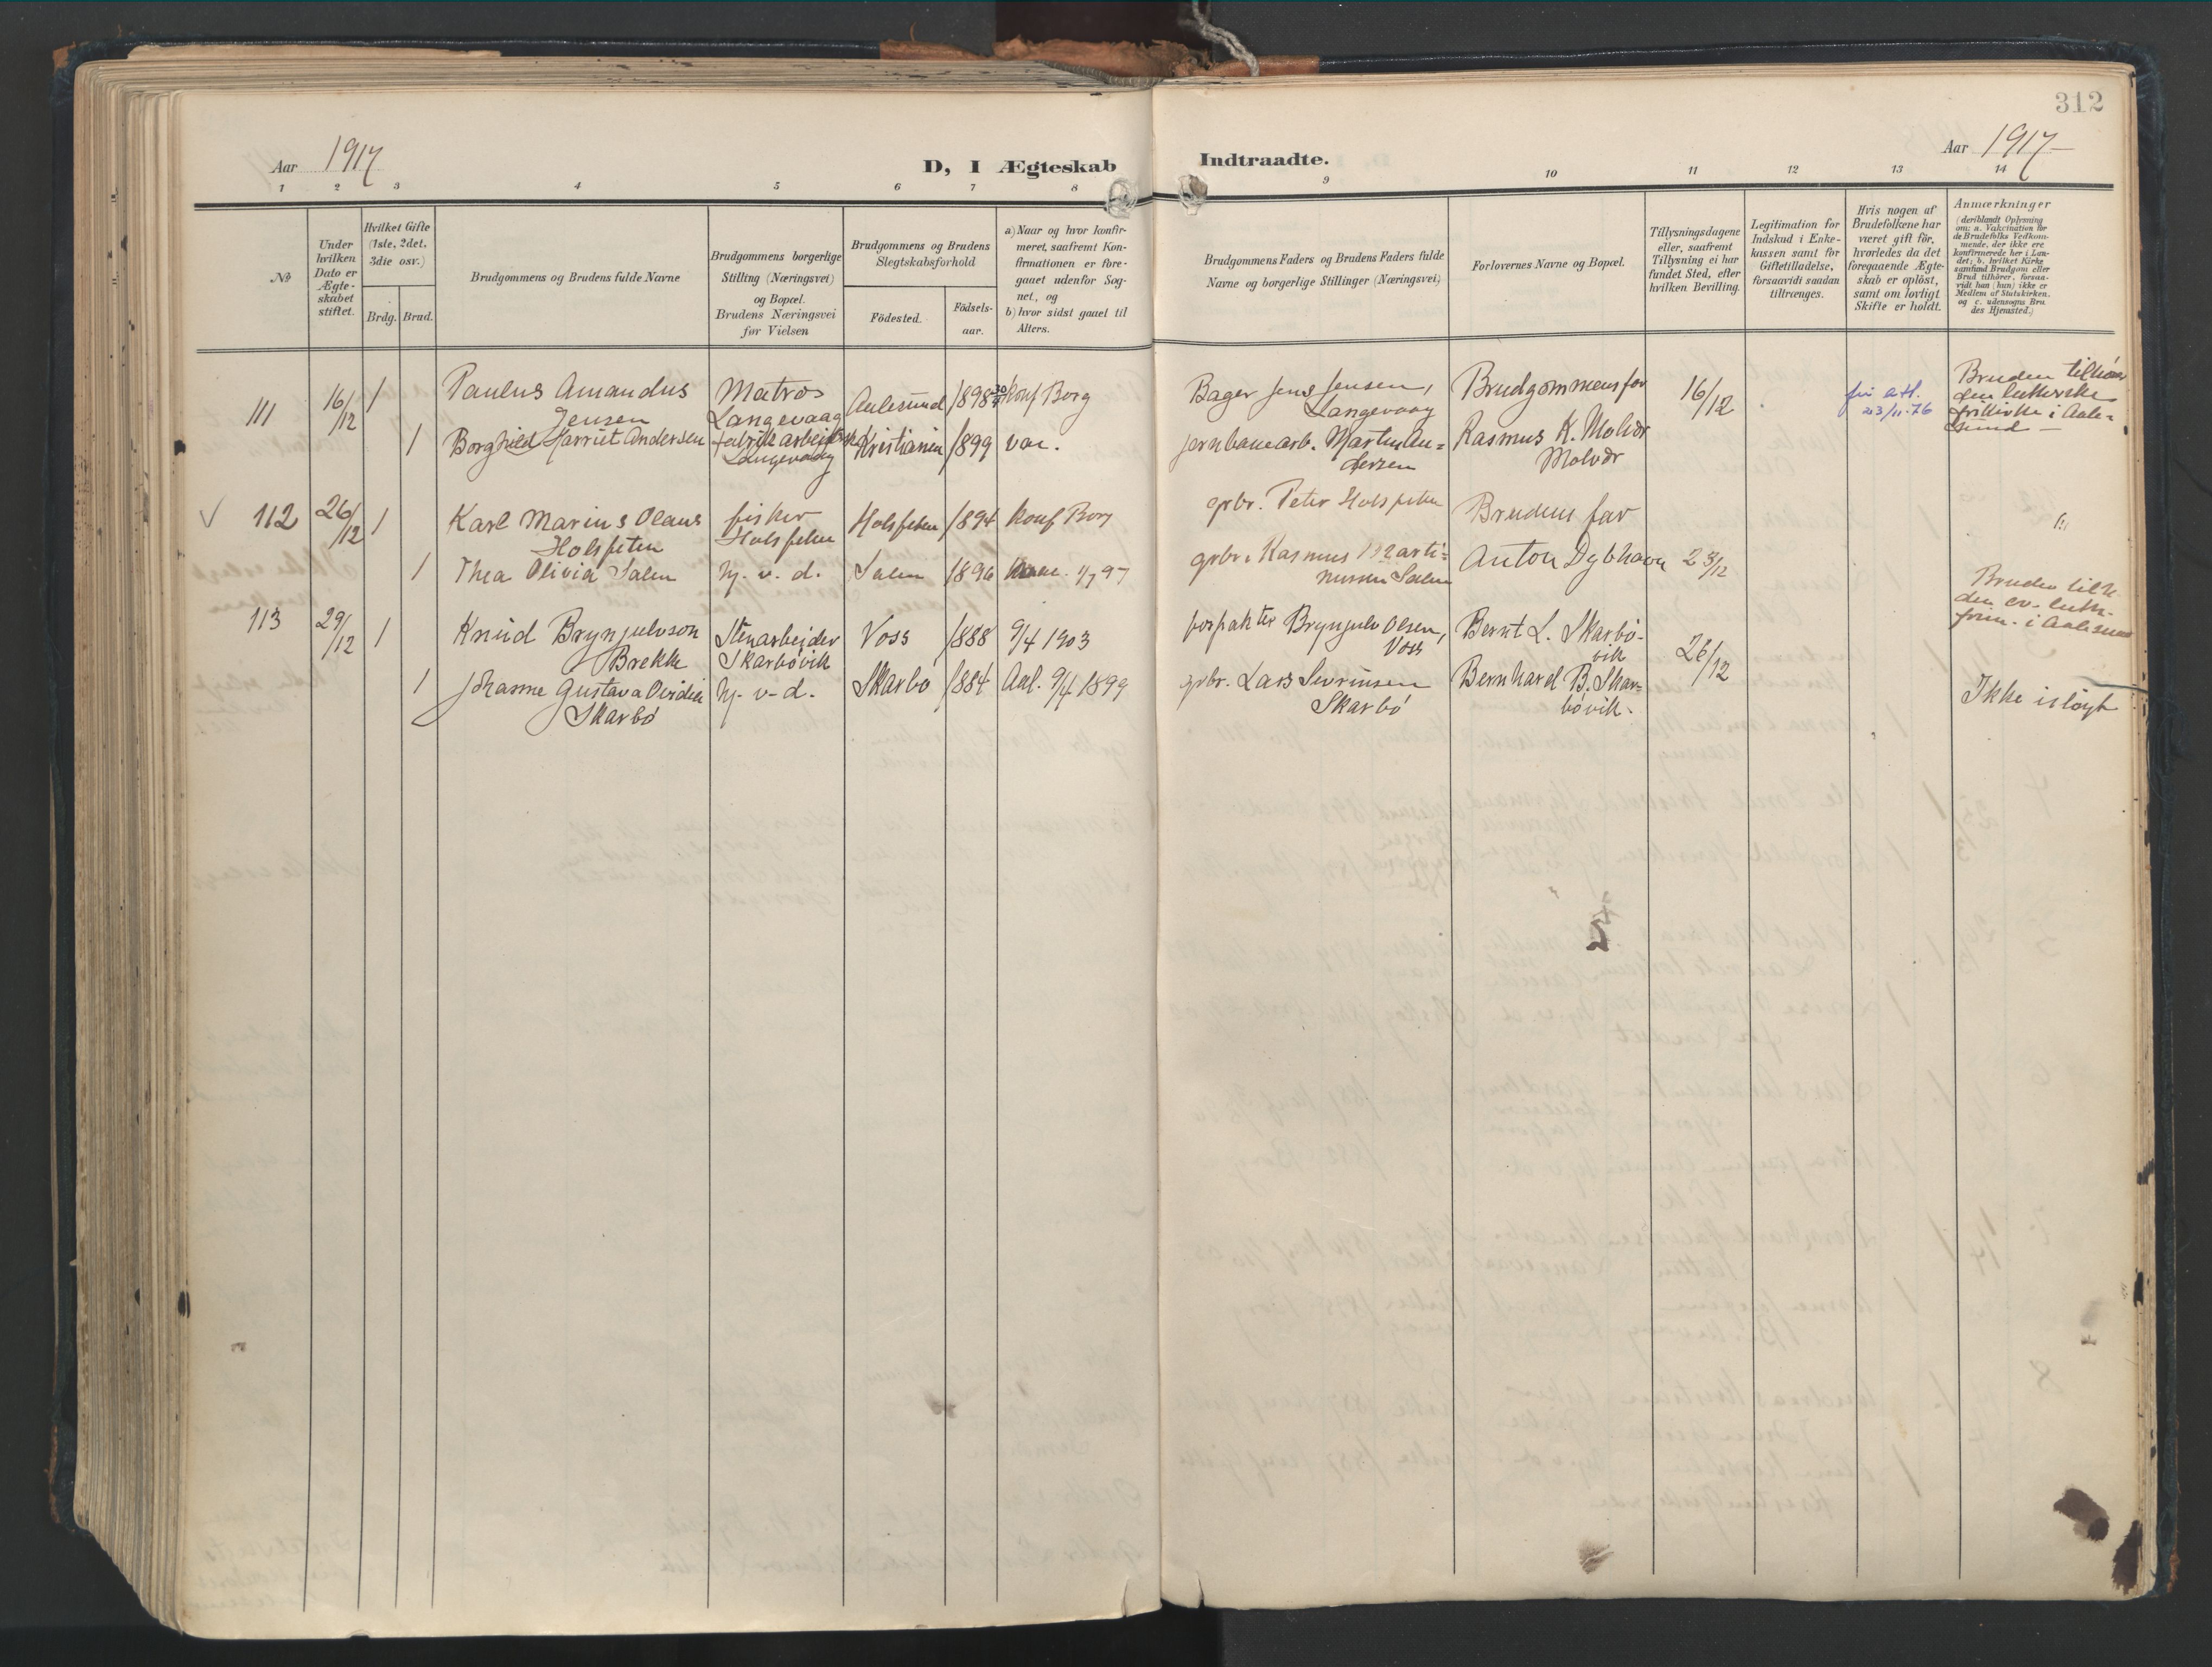 312
Aar 1917
D, I Ægteskab
Indtraadte.
Aar 1917
1 2 3 4 5 6 7 8
9 10 11 12 13 14
№
Under
hvilken
Dato er
Ægte-
skabet
stiftet.
Hvilket Gifte
(1ste, 2det,
3die osv.)
Brdg. Brud.
Brudgommens og Brudens fulde Navne
Brudgommens borgerlige
Stilling (Næringsvei)
og Bopæl.
Brudens Næringsvei
før Vielsen
Brudgommens og Brudens
Slegtskabsforhold
Fødested.
Fødsels-
aar.
a) Naar og hvor konfir-
meret, saafremt Kon-
firmationen er fore-
gaaet udenfor Sog-
net, og
b) hvor sidst gaaet til
Alters.
Brudgommens Faders og Brudens Faders fulde
Navne og borgerlige Stillinger (Næringsvei)
Forlovernes Navne og Bopæl.
Tillysningsdagene
eller, saafremt
Tillysning ei har
fundet Sted, efter
hvilken Bevilling.
Legitimation for
Indskud i Enke-
kassen samt for
Giftetilladelse,
forsaavidt saadan
tiltrænges.
Hvis nogen af
Brudefolkene har
været gift før,
hvorledes da det
foregaaende Ægte-
skab er opløst,
samt om lovligt
Skifte er holdt.
Anmærkninger
(deriblandt Oplysning
om: a. Vakcination for
de Brudefolks Vedkom-
mende, der ikke ere
konfirmerede her i Lan-
det; b. hvilket Kirke
samfund Brudgom eller
Brud tilhører, forsaa-
vidt han (hun) ikke er
Medlem af Statskirken.
og c. udensogns Bru
des Hjemsted.)
111 16/12 1 Paulus Amandus
Jensen
Matros
Langevaag
Aalesund 1898 30/ Konf Borg
Bager Jens Jensen,
Langevaag
Brudgommens far
16/12
23/11-76
Bruden tilhører
den lutherske
frikirke i Aale-
sund
1 Borghild Harriet Andersen
fabrikarbeiderske
Langevaag
Kristiania 1899 vac.
jernbanearb. Martin An-
dersen
Rasmus K. Molvær
Molvær
112 26/12 1 Karl Marius Olaus
Holsfeten
fisker
Holsfeten
Holsfeten 1894 Konf Borg
grbr. Peter Holsfeten
Brudens far
1 Thea Olivia Salen
hj. v. d. Salen 1896
grbr. Rasmus Marti-
nussen Salen
Anton Dybhavn 23/12
113 29/12 1 Knud Brynjulvson
Brekke
Stenarbejder
Skarbøvik
Voss 1888 9/4 1903
forpakter Brynjulv Olsen,
Voss
Bernt L. Skarbø-
vik
26/12
Bruden tilh.
den ev. luth.
frim. i Aalesund
1 Johanne Gustava Ovidia
Skarbø
hj. v. d. Skarbø 1884 Aal. 9/4 1899
grbr. Lars Sevrinsen
Skarbø
Bernhard B. Skar-
bøvik.
Ikke isløyt